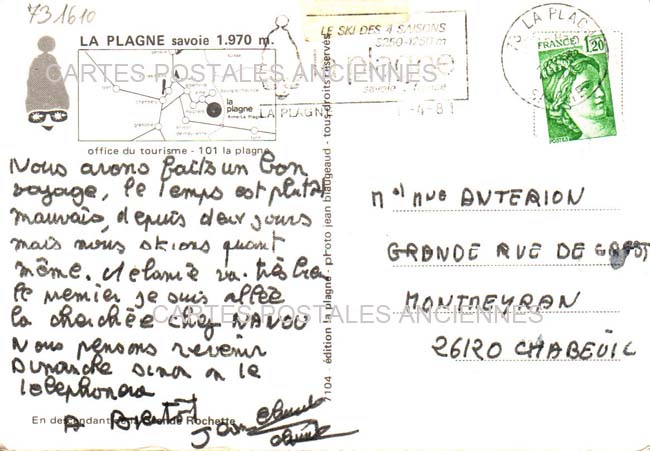 731610
LA PLAGNE savoie 1.970 m.
CARTES POSTALES ANCIENNES
la plagne
office du tourisme - 101 la plagne
Nous avons faits un bon
voyage, le temps est plutôt
mauvais, depuis deux jours
mais nous skions quant
même. Melanie va très bien
le premier je suis allée
la cherchée chez NANOU
Nous pensons revenir
Dimanche sinon on te
telephonera
A Bientôt
En descendant de la Grande Rochette
7104 - édition la plagne - photo jean biaugeaud - tous droits réservés
LE SKI DES 4 SAISONS
3250-1250 m
la plagne
savoie - france
LA PLAGNE
-4-81
73 LA PLAGNE
FRANCE 1,20
POSTES
Mr Mme ANTERION
GRANDE RUE DE
MONTMEYRAN
26120 CHABEUIL
CARTES POSTALES ANCIENNES